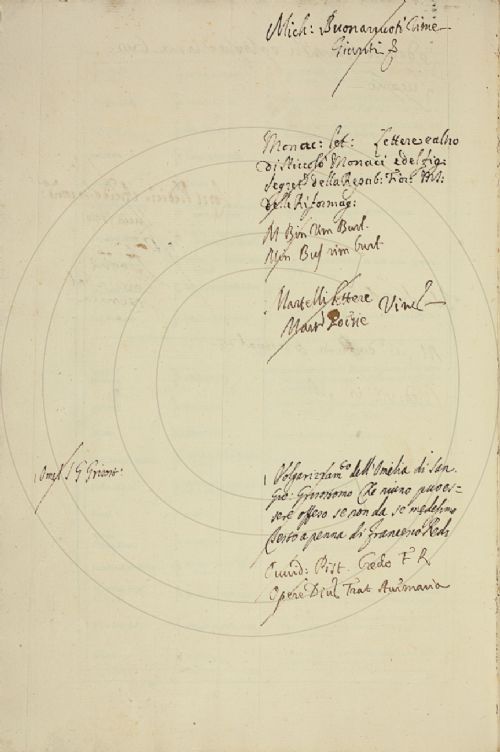 Mich: Buonarruoti Rime
Giunti
Monac: let: Lettere ealtro
di Niccolò Monaci e del fig:
segret. della Repub: Fior: MS:
della Riformag:
M Bin Rim Burl.
Min Bu rim burl
Martelli lettere Vinc
Mart Poesie
Omel. S G Grisost:
Volgarizzam.to dell'Omelia di San
Gio: Grisostomo Che niuno puo es-
sere offeso se non da se medesimo
Testo a penna di Francesco Redi
Guid: Pist. Credo F R
Opere Trat Avemaria